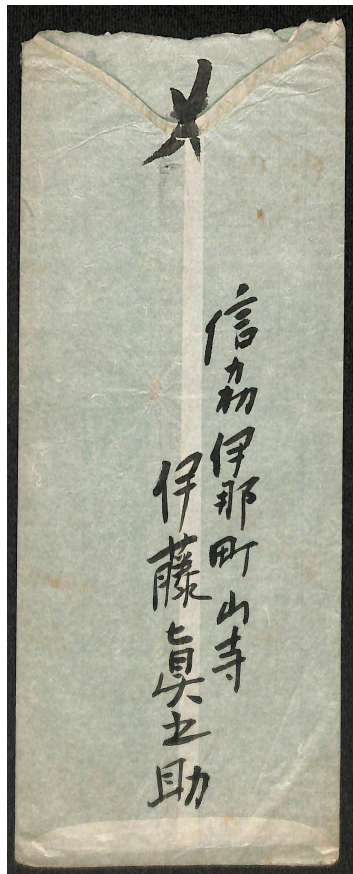 〆
信州伊那町山寺
伊藤眞之助